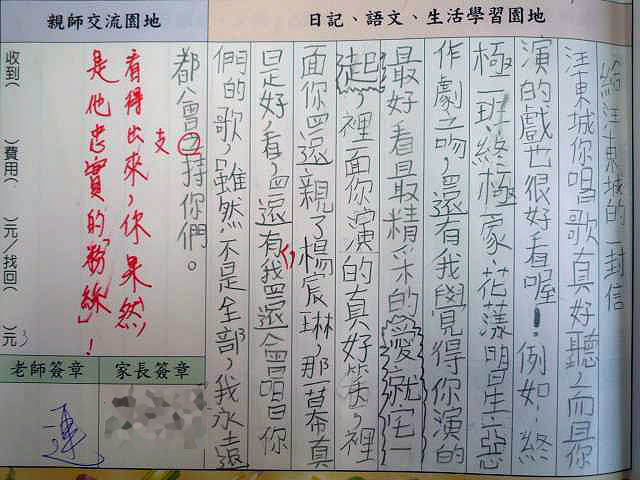 日記、語文、生活學習園地
給汪東城的一封信
汪東城你唱歌真好聽，而且你
演的戲也很好看喔！例如：終
極一班、終極一家、花漾明星、惡
作劇之吻，還有我覺得你演的
最好看最精采的愛就宅一
起，裡面你演的真好笑，裡
面你還親了楊宸琳，那一幕真
是好看，還有我還會唱你
們的歌，雖然不是全部，我永遠
都會持你們。
支
親師交流園地
看得出來，你果然
是他忠實的「粉絲」！
收到（ ）費用（ ）元／找回（ ）元
家長簽章
老師簽章